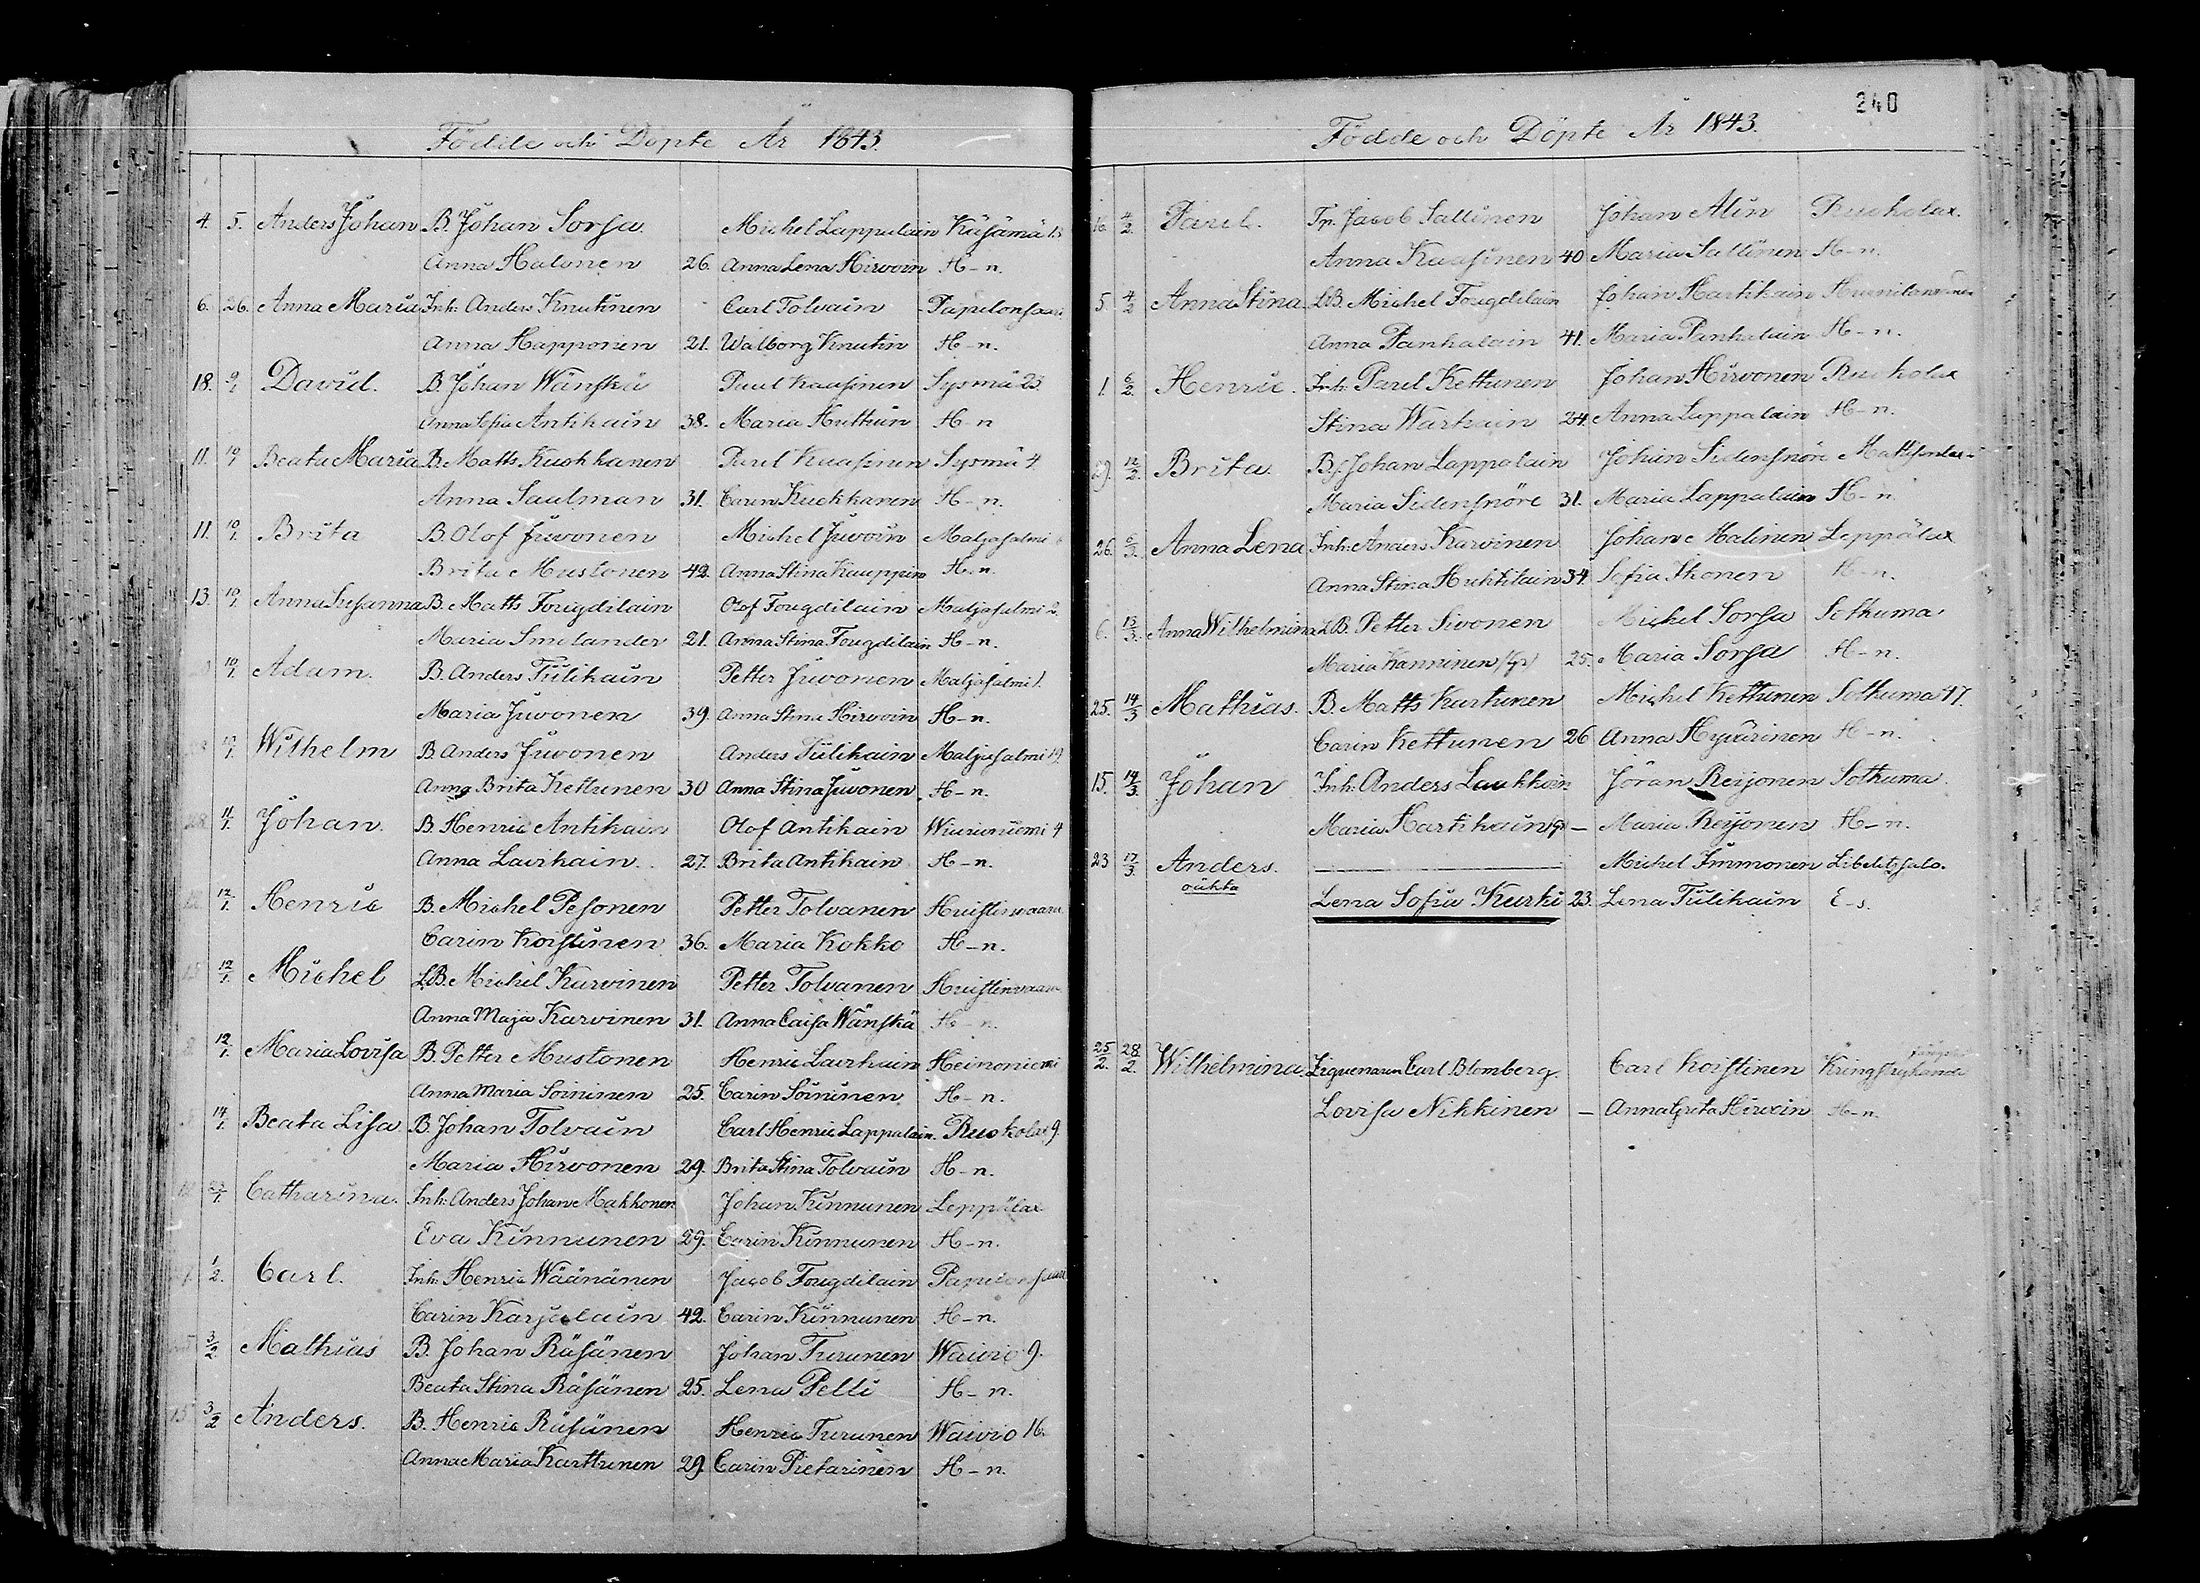 Födde och Döpte År 1843.
4. 5. Anders Johan B. Johan Sorsa Michel Lappalain Käsämä 13
Anna Halonen 26. Anna Lena Hirvoin H-n.
6. 26. Anna Maria Inh: Anders Knutinen Carl Tolvain Papelonsaari
Anna Happonen 21. Walborg Knutin H-n.
18. 9/1 David. B. Johan Wänskä Paul Kaasinen Sysmä 23
Anna Sofia Antikain 38. Maria Huttuin H-n
11. 10/1 Beata Maria B. Matts Kuokkanen Paul Kaasinen Sysmä 4.
Anna Saulman 31. Caren Kuokkanen H-n.
11. 10/1. Brita B. Olof Juvonen Michel Juvoin Maljasalmi
Brita Mustonen 42. Anna Stina Kauppin H-n.
13. 10/1. Anna Susanna B. Matts Fougdilain Olof Fougdilain Maljasalmi 2.
Maria Smelander 21. Anna Stina Fougdilain H-n.
10/1. Adam. B. Anders Tulikain Petter Juvonen Maljasalmi 1.
Maria Juvonen 39. Anna Stina Hirvoin H-n.
Wilhelm B. Anders Juvonen Anders Tulikain Maljasalmi 19.
Anna Brita Kettunen 30 Anna Stina Juvonen H-n.
11/1. Johan. B. Henric Antikain Olof Antikain Wiuruniemi 4
Anna Lavikain. 27. Brita Antikain H-n.
12/1. Henric B. Michel Pesonen Petter Tolvanen Huistinvaara
Carin Koistinen 36. Maria Kokko H-n.
15 12/1. Michel LB. Michel Karvinen Petter Tolvanen Huistinvaara
Anna Maja Karvinen 31. Anna Caisa Wänskä H-n.
12/1. Maria Lovisa B. Petter Mustonen Henric Lavikain Heinoniemi
Anna Maria Soininen 25. Carin Soininen H-n.
14/1 Beata Lisa B. Johan Tolvain Carl Henric Lappalain. Ruokolax 9.
Maria Hirvonen 29. Brita Stina Tolvain H-n.
Catharina. Inh: Anders Johan Makkonen Johan Kinnunen Leppälax
Eva Kinnunen 29. Carin Kinnunen H-n.
1/2. Carl. Inh: Henric Wäänänen Jacob Fougdilain Papelonsaari
Carin Karjalain 42. Carin Kinnunen H-n.
3/2 Mathias B. Johan Räsänen Johan Turunen Waivio 9.
Beata Stina Räsänen 25. Lena Pelli H-n.
15 3/2 Anders. B. Henric Räsänen Henric Turunen Waivio 16.
Anna Maria Karttunen 29. Carin Pietarinen H-n.
240
Födde och Döpte År 1843.
16. 4/2. Paul. Tp. Jacob Sallinen Johan Alin Ruokolax.
Anna Kaasinen 40 Maria Sallinen H-n.
5. 4/2 Anna Stina LB. Michel Fougdilain Johan Hartikain
Anna Pankalain 41. Maria Pankalain H-n.
1. 6/2. Henric. Inh: Paul Kettunen Johan Hirvonen Ruokolax
Stina Warkain 24. Anna Lappalain H-n.
29. 12/2. Brita. Bs. Johan Lappalain Johan Sidensnöre
Maria Sidensnöre 31. Maria Lappalain H-n.
26. 6/3. Anna Lena Inh: Anders Karvinen Johan Malinen Leppälax
Anna Stina Huhtilain 34. Sofia Ikonen H-n.
6. 13/3. Anna Wilhelmina LB. Petter Sivonen Michel Sorsa Sotkuma
Maria Kanninen 25. Maria Sorsa H-n.
25. 14/3 Mathias. B. Matts Kartunen Michel Kettunen Sotkuma 47.
Carin Kettunen 26 Anna Hyvärinen H-n.
15. 14/3. Johan Inh: Anders Laukkain Jöran Reijonen Sotkuma
Maria Hartikain — Maria Reijonen H-n.
23 17/3. Anders. ——— Michel Immonen Libelitssalo.
oäkta
Lena Sofia Kurki 23. Lena Tulikain E-s.
25/2. 28/2. Wilhelmina. Ziguenaren Carl Blomberg. Carl Koistinen Kringstrykande
Lovisa Nikkinen — Anna Greta Hirvoin H-n.